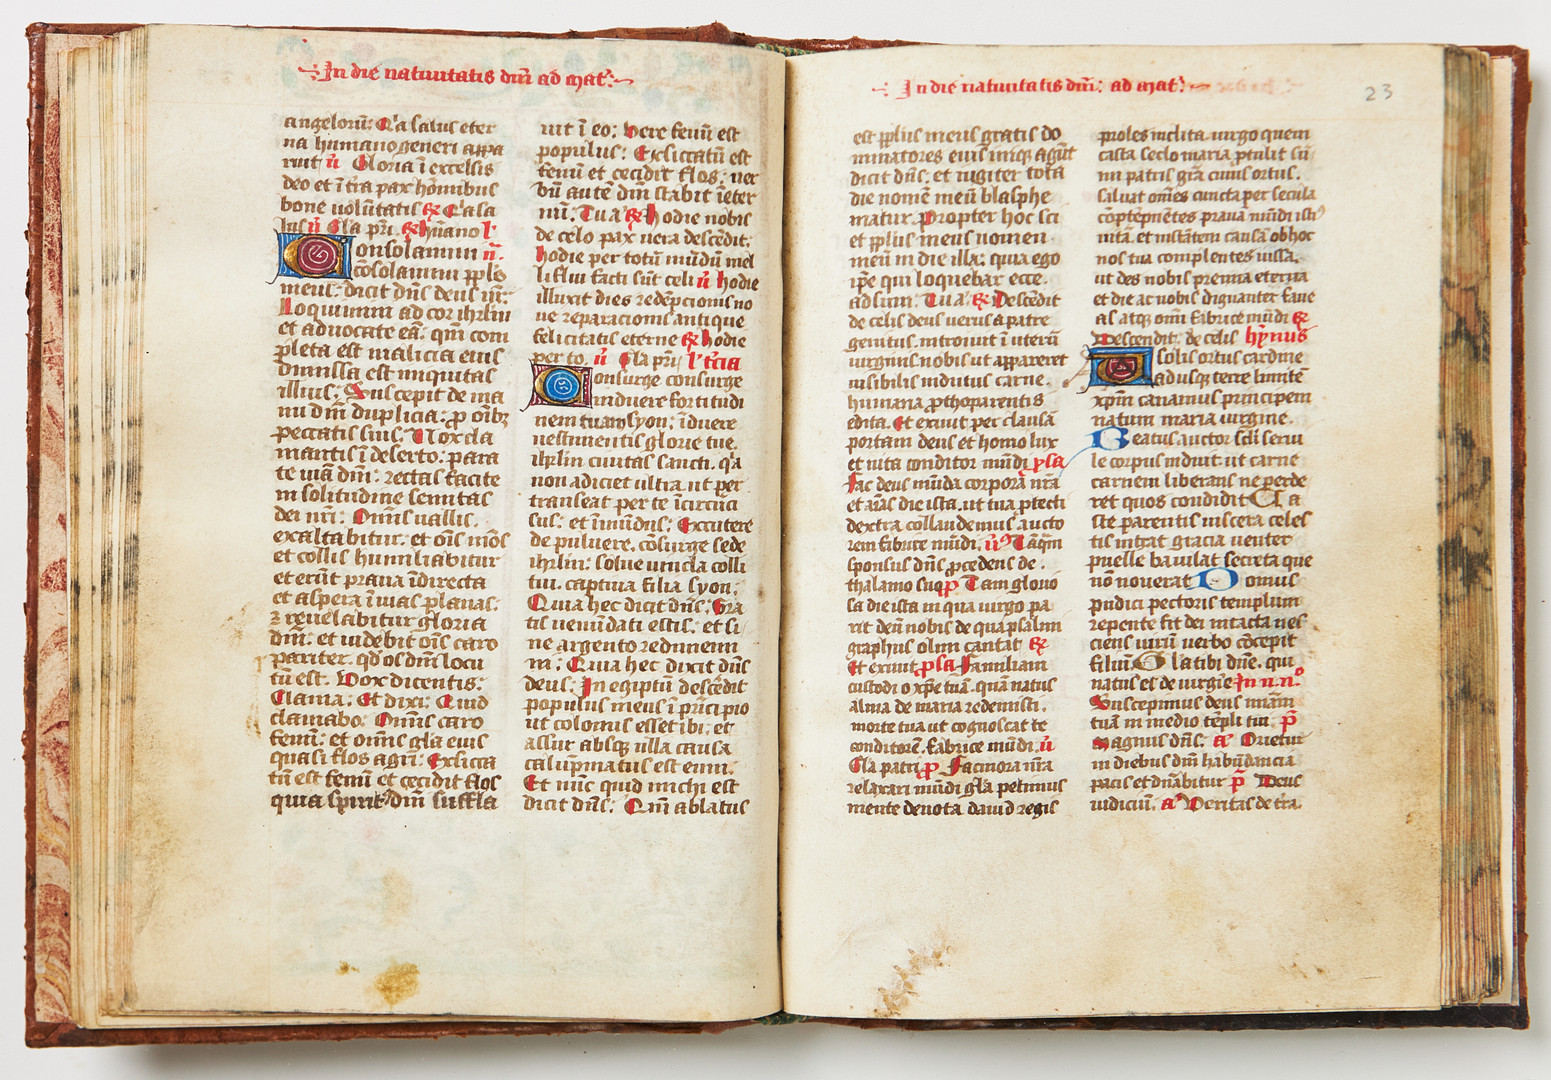 In die natiuitatis dm̄ ad mat̄.
angeloru̅: Q'a salus eter
na humano generi appa
ruit v̄ Gloria ī excelsis
deo et ī t̄ra pax hōnibus
bone volūtatis & Q'a sa
lus v̄ Gla pr̄i. & humano l'
Consolamini n̄.
cōsolamini pp̄le
meus: dicit dn̄s deus vr̄:
Loquimini ad cor ihrl̄m
et aduocate eā: qm̄ com
pleta est malicia eius
dimissa est iniquitas
illius: Suscepit de ma
nu dm̄ duplicia: ꝓ oībz
peccatis suis: Uox cla
mantis ī deserto: para
te uiā dm̄: rectas facite
in solitudine semitas
dei nr̄i: Omīs uallis.
exaltabitur: et oīs mōs
et collis humiliabitur
et erūt praua ī directa
et aspera ī uias planas:
ꝫ reuelabitur gloria
dm̄: et uidebit oīs caro
pariter. qd os dm̄ locu
tū est. Vox dicentis:
Clama: Et dixi: Quid
clamabo: Omīs caro
fenū: et omīs gla eius
quasi flos agri: Exsicca
tū est fenū et cecidit flos
quia spirit' dm̄ suffla
uit ī eo: Vere fenū est
populus: Exsiccatū est
fenū et cecidit flos: uer
bū autē dm̄ stabit ī eter
nū: Tu a. & Hodie nobis
de celo pax uera descēdit:
Hodie per totū mūdū mel
liflui facti sūt celi v̄ Hodie
illuxit dies redēpcionis no
ue reparacionis antique
felicitatis eterne & Hodie
per to. v̄ Gla pr̄i l'tcia
Consurge consurge
induere fortitudi
nem tuam syon: īduere
uestimentis glorie tue.
ihrl̄m ciuitas sancti. q'a
non adiciet ultra ut per
transeat per te īcircūci
sus: et īmūdus: Excutere
de puluere. cōsurge sede
ihrl̄m: solue uincla colli
tui. captiua filia syon:
Quia hec dicit dn̄s: Gra
tis uenūdati estis: et si
ne argento redimemi
ni: Quia hec dixit dn̄s
deus: In egiptū descēdit
populus meus ī pr̄ncipio
ut colonus esset ibi: et
assur absqꝫ ulla causa
calūpniatus est eum.
Et nūc quid michi est
dicit dn̄s: Qm̄ ablatus
In die natiuitatis dm̄: ad mat̄:
23
est pp̄lus meus gratis do
minatores eius iniqꝫ agūt
dicit dn̄s: et iugiter tota
die nomē meū blasphe
matur. Propter hoc sci
et pp̄lus meus nomen
meū in die illa: quia ego
ip̄e qui loquebar ecce.
adsum: Tu a. & Descēdit
de celis deus uerus a patre
genitus. introiuit ī uterū
uirginis nobis ut appareret
uisibilis indutus carne.
humana ꝓthoparentis
edita. Et exiuit per clausā
portam deus et homo lux
et uita conditor mūdi ꝓsa
Fac deus mūda corpora nr̄a
et aīas die ista. ut tua ꝓtecti
dextra collaudemus aucto
rem fabrice mūdi. v̄s Tāqm̄
sponsus dn̄s ꝓcedens de.
thalamo suo ꝓ Tam glorio
sa die ista in qua uirgo pa
rit deū nobis de qua psalmi
graphus olim cantat &
Et exiuit ꝓsa Familiam
custodi o xp̄e tuā. quā natus
alma de maria redemisti.
morte tua ut cognoscat te
conditorē. fabrice mūdi. v̄
Gla patri ꝓ Facinora nr̄a
relaxari mūdi gla petimus
mente deuota dauid regis
proles inclita uirgo quem
casta seclo maria ꝓtulit sū
mi patris gr̄a cuius ortus.
saluat omēs cuncta per secula
mitā. et instātem causā ob hoc
nos tua complentes iussa.
ut des nobis premia eterna
et die ac nobis dignanter faue
as atqꝫ omī fabrice mūdi &
Descendit. de celis hymn9
A solis ortus cardine
adusqꝫ terre limitē
xp̄m canamus principem
natum maria uirgine.
Beatus auctor scl̄i serui
le corpus induit: ut carne
carnem liberans ne perde
ret quos condidit Ca
ste parentis uiscera celes
tis intrat gracia uenter
puelle baiulat secreta que
nō nouerat Domus
pudici pectoris templum
repente fit dei intacta nes
ciens uirū verbo cōcepit
filiū Gla tibi dn̄e. qui
natus es de uirgīe In n.n̊
Suscepimus deus miām
tuā in medio tēpli tui. p̄
Magnus dn̄s. a' Orietur
in diebus dm̄ habūdancia
pacis et dnābitur p̄ Deus
iudiciū. a' Veritas de t̄ra.